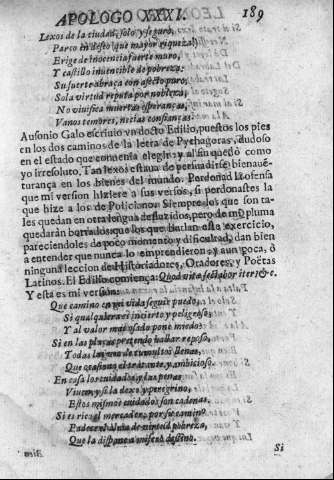 APOLOGO XXXI. 189
Lexos de la ciudad, solo y seguro,
Parco en desto que mayor riqueza!
Erige de inocencia fuerte muro,
Y castillo inuencible de pobreza.
Su suerte abraça con afecto puro,
Sola virtud reputa por nobleza,
No viuifica muertas esperanças,
Vanos temores, necias confianças.
Ausonio Galo escriuio vn docto Edilio, puestos los pies
en los dos caminos de la letra de Pythagoras, dudoso
en el estado que conuenia elegir: y al fin quedò como
yo irresoluto. Tan lexos estaua de persuadirse bienauē
turança en los bienes del mundo. Perdonad la ofensa
que mi version hiziere a sus versos, si perdonastes la
que hize a los de Policiano. Siempre los que son ta-
les quedan en otra lengua deslucidos, pero de mi pluma
quedarán borrados: que los que hazen este exercicio,
pareciendoles de poco momento y dificultad, dan bien
a entender que nunca lo emprendieron: y aun poca, ò
ninguna leccion de Historiadores, Oradores, y Poëtas
Latinos. El Edilio comiença: Quod vitæ sectabor iter? &c.
Y esta es mi version:
Que camino en mi vida seguir puedo,
Si qualquiera es incierto y peligroso,
Y al valor mas osado pone miedo?
Si en las plaças pretendo hallar reposo,
Todas las de tumultos llenas,
Que ocasiona el tratante, y ambicioso.
En casa los cuidados, y las penas
Viuen, y si la dexo y peregrino,
Estos mismos cuidados son cadenas.
Si es rico el mercader, por su camino
Padece el de pobreza,
Que la dispone a misero destino.
Si